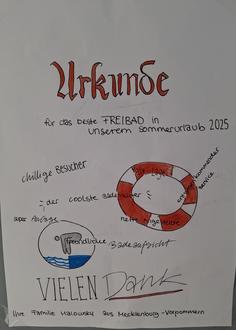 Urkunde
für das beste FREIBAD in
unserem Sommerurlaub 2025
chillige Besucher
der coolste Bademeister
super Anlage
nette Angestellte
entgegenkommender
Service
freundliche Badeaufsicht
VIELEN Dank
Ihre Familie Malowsky aus Mecklenburg-Vorpommern